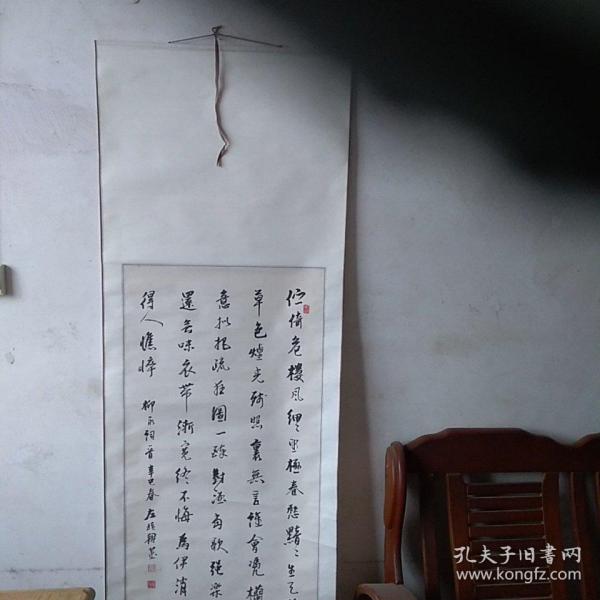 伫倚危楼风细细望极春愁黯黯生天
草色煙光殘照裏無言誰會凭欄
意拟把疏狂圖一醉對酒當歌强樂
還無味衣帶漸寬終不悔為伊消
得人憔悴
柳永詞一首辛巳春左
孔夫子旧书网
www.kongfz.com